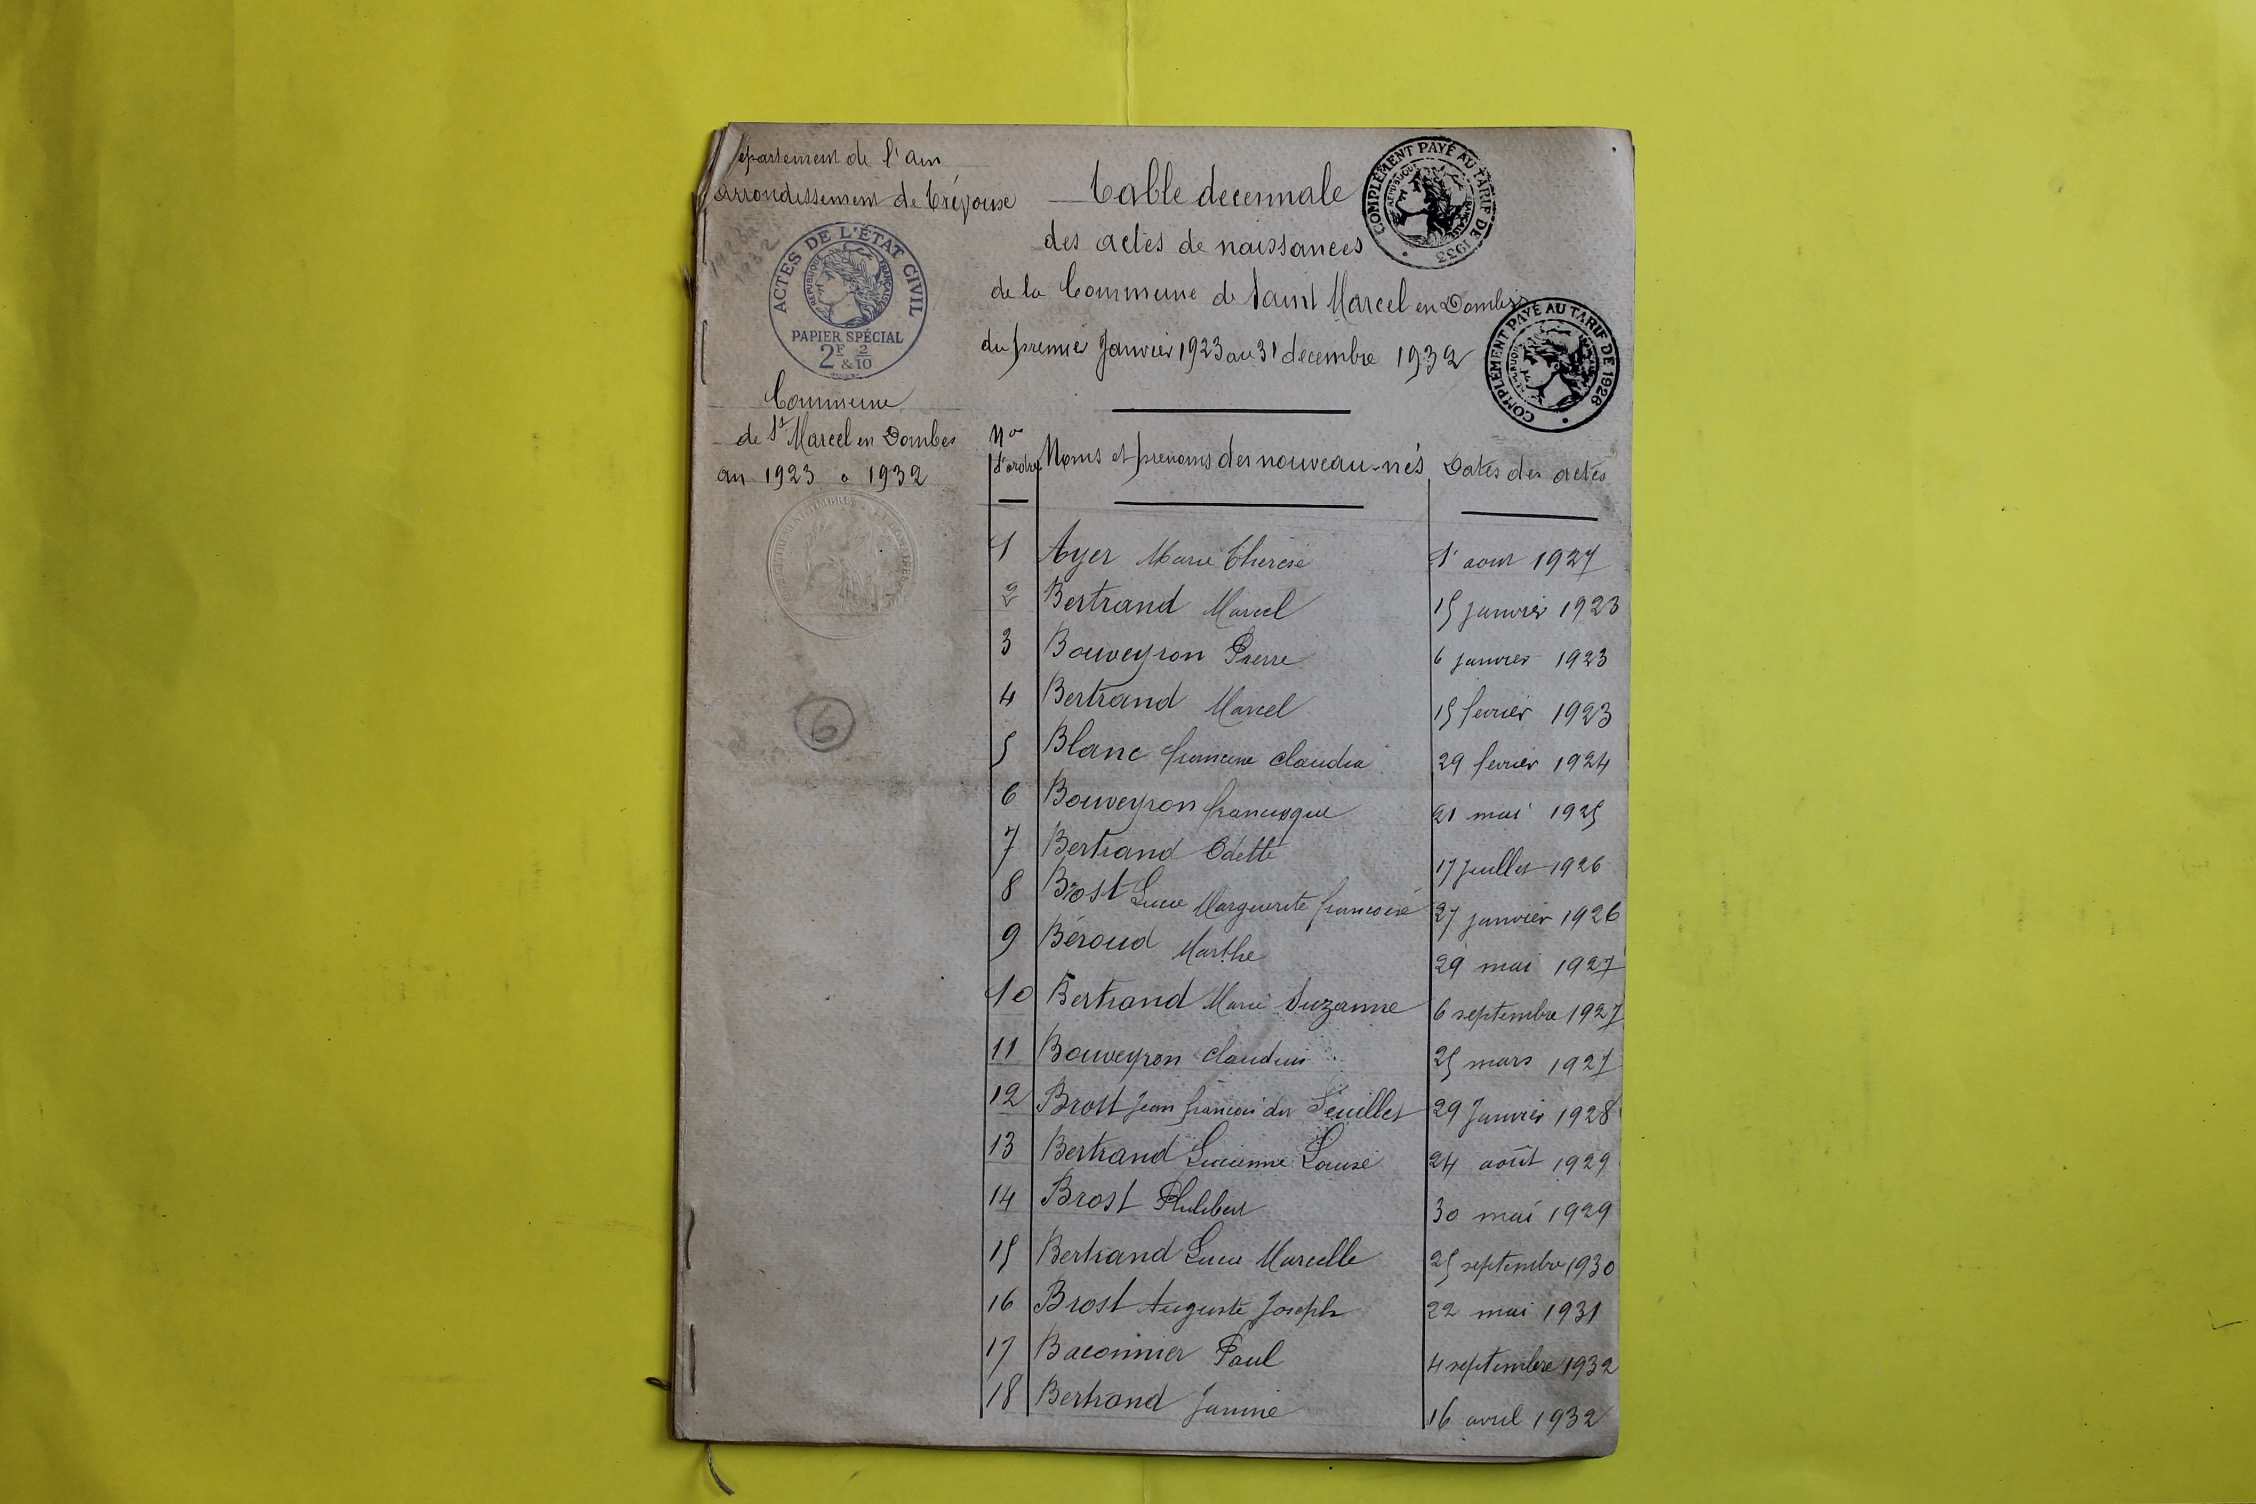 epartement de l'ain
arrondissement de Trévoux
1923
1932
ACTES DE L'ÉTAT CIVIL
REPUBLIQUE FRANÇAISE
PAPIER SPÉCIAL
2F & 2/10
Commune
de St Marcel en Dombes
an 1923 a 1932
6
Table decennale
des actes de naissances
de la Commune de Saint Marcel en Dombes
du premier Janvier 1923 au 31 decembre 1932
COMPLÉMENT PAYÉ AU TARIF DE 1933
REPUBLIQUE FRANÇAISE
COMPLÉMENT PAYÉ AU TARIF DE 1926
REPUBLIQUE FRANÇAISE
Nos d'ordre Noms et prenoms des nouveau-nés Dates des actes
1 Ayer Marie Therese 1r aout 1927
2 Bertrand Marcel 15 janvier 1923
3 Bouveyron Pierre 6 janvier 1923
4 Bertrand Marcel 15 fevrier 1923
5 Blanc francine claudia 29 fevrier 1924
6 Bouveyron francisque 21 mai 1925
7 Bertrand Odette 17 juillet 1926
8 Brost Lucie Marguerite francoise 27 janvier 1926
9 Béroud Marthe 29 mai 1927
10 Bertrand Marie Suzanne 6 septembre 1927
11 Bouveyron claudius 25 mars 1927
12 Brost Jean francois des Feuilles 29 Janvier 1928
13 Bertrand Lucienne Louise 24 août 1929
14 Brost Philibert 30 mai 1929
15 Bertrand Lucie Marcelle 25 septembre 1930
16 Brost Auguste Joseph 22 mai 1931
17 Baconnier Paul 4 septembre 1932
18 Bertrand Janine 16 avril 1932